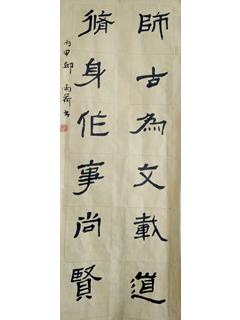 師古為文載道
脩身作事尚賢
丙申邱雨薪書